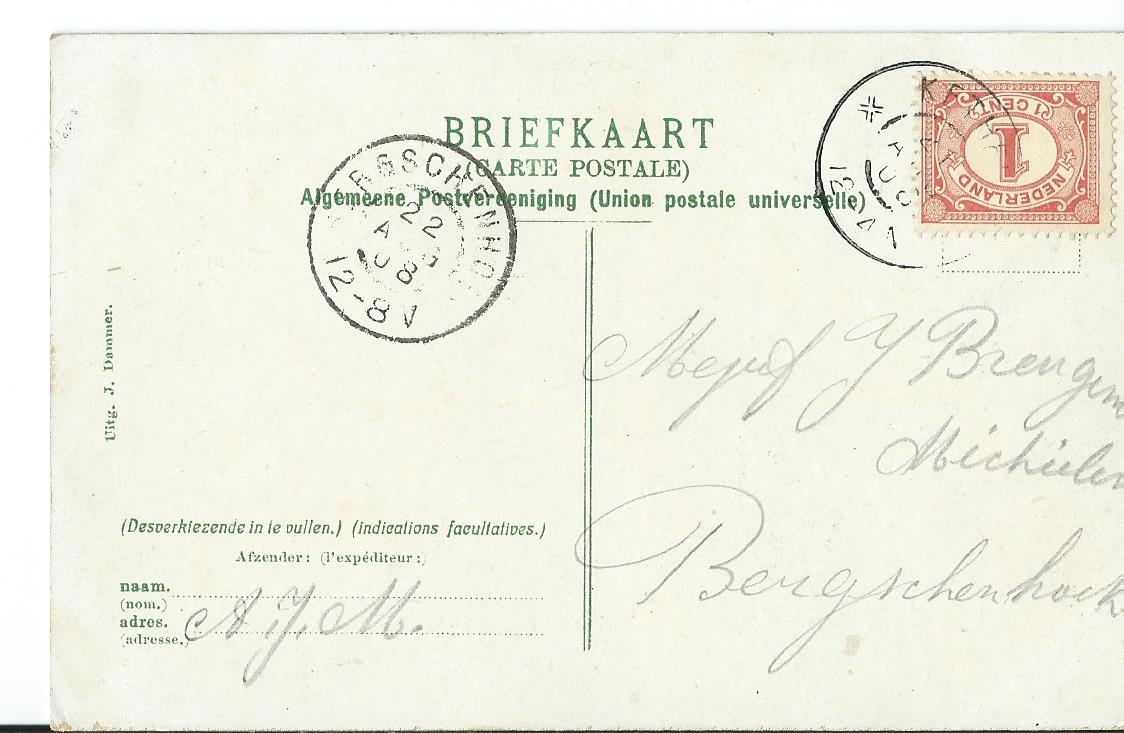 BRIEFKAART
(CARTE POSTALE)
Algemeene Postvereeniging (Union postale universelle)
NEDERLAND
1
1 CENT
12
41
BERGSCHENHOEK
22
AUG
8
12-8V
Mejuf J Brengem
Bergschenhoek
Uitg. J. Dammer.
(Desverkiezende in te vullen.) (indications facultatives.)
Afzender: (l'expéditeur:)
naam.
(nom.)
adres.
(adresse.)
A J. M.